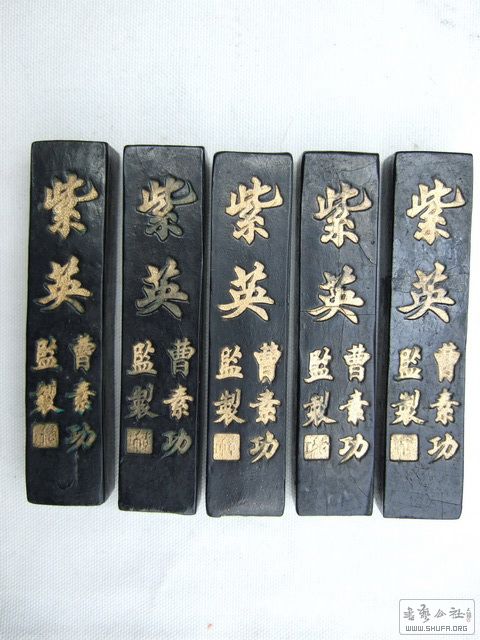 紫英
曹素功
監製
紫英
曹素功
監製
紫英
曹素功
監製
紫英
曹素功
監製
紫英
曹素功
監製
WWW.SHUFA.ORG